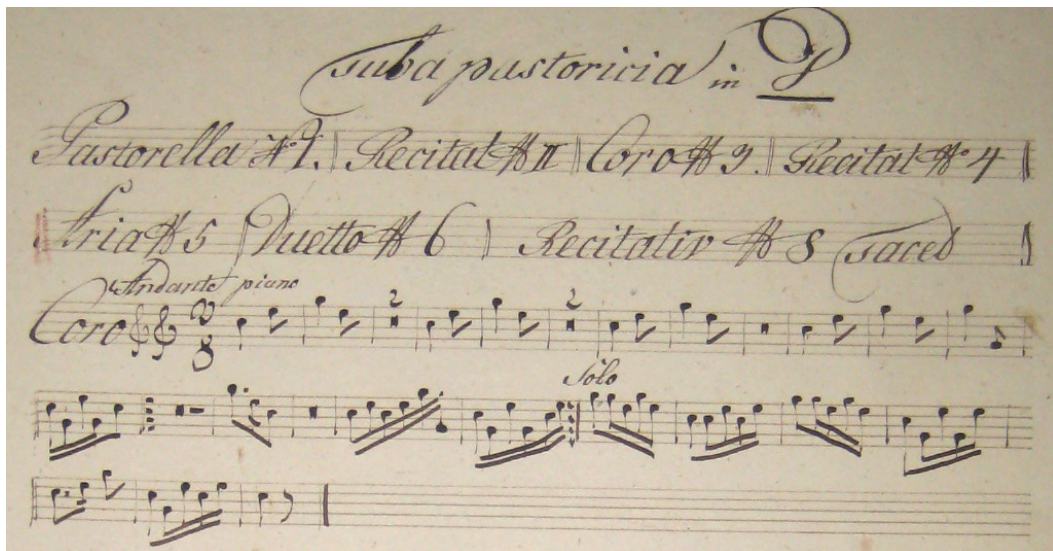 Tuba pastoricia in
Pastorella No 1. Recitat No II Coro No 3. Recitat No 4
Aria No 5 Duetto No 6 Recitativ No 8 Tacet
Andante piano
Coro 3 8 2 2
Solo